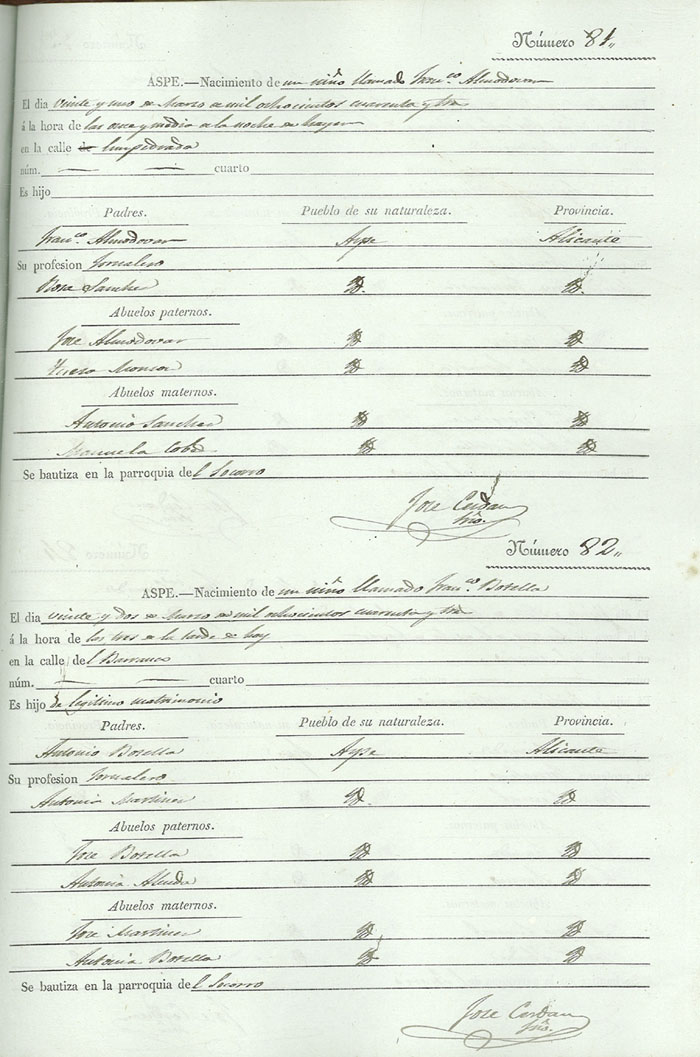 Número 81„
ASPE.—Nacimiento de un niño llamado Franco Almodovar
El dia veinte y uno de Marzo de mil ochocientos cuarenta y tres
á la hora de las once y media de la noche de hayer
en la calle de Empedrada
núm. — — cuarto
Es hijo
Padres. Pueblo de su naturaleza. Provincia.
Franco. Almodovar Aspe Alicante
Su profesion Jornalero
Rosa Sanchez Id. Id.
Abuelos paternos.
Jose Almodovar Id Id
Teresa Id Id
Abuelos maternos.
Antonio Sanchez Id Id
Manuela Id Id
Se bautiza en la parroquia del Socorro
Jose Cerdan
Srio.
Número 82„
ASPE.—Nacimiento de un niño llamado Franco Botella
El dia veinte y dos de Marzo de mil ochocientos cuarenta y tres
á la hora de las tres de la tarde de hoy
en la calle del Barranco
núm. — — cuarto
Es hijo de legitimo matrimonio
Padres. Pueblo de su naturaleza. Provincia.
Antonio Botella Aspe Alicante
Su profesion Jornalero
Antonia Martinez Id. Id
Abuelos paternos.
Jose Botella Id Id
Antonia Id Id
Abuelos maternos.
Jose Martinez Id Id
Antonia Botella Id Id
Se bautiza en la parroquia del Socorro
Jose Cerdan
Srio.